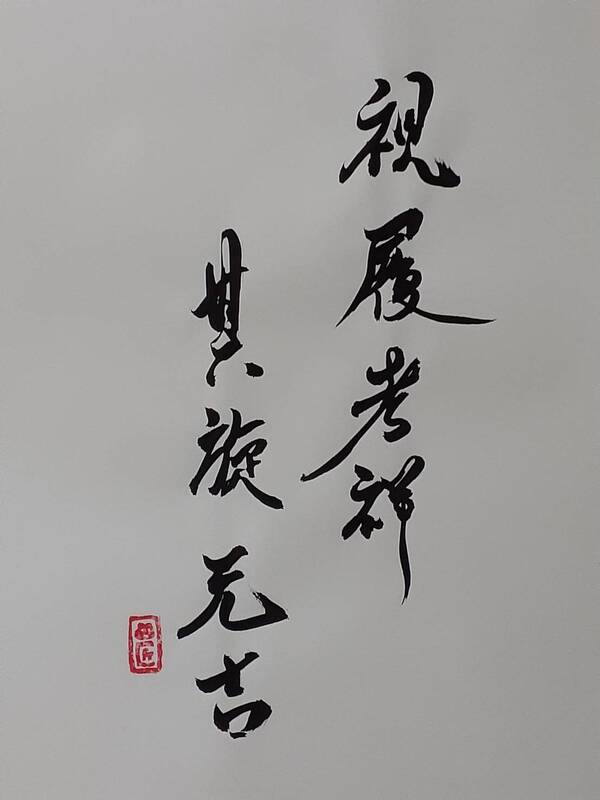 視履考祥
其旋元吉